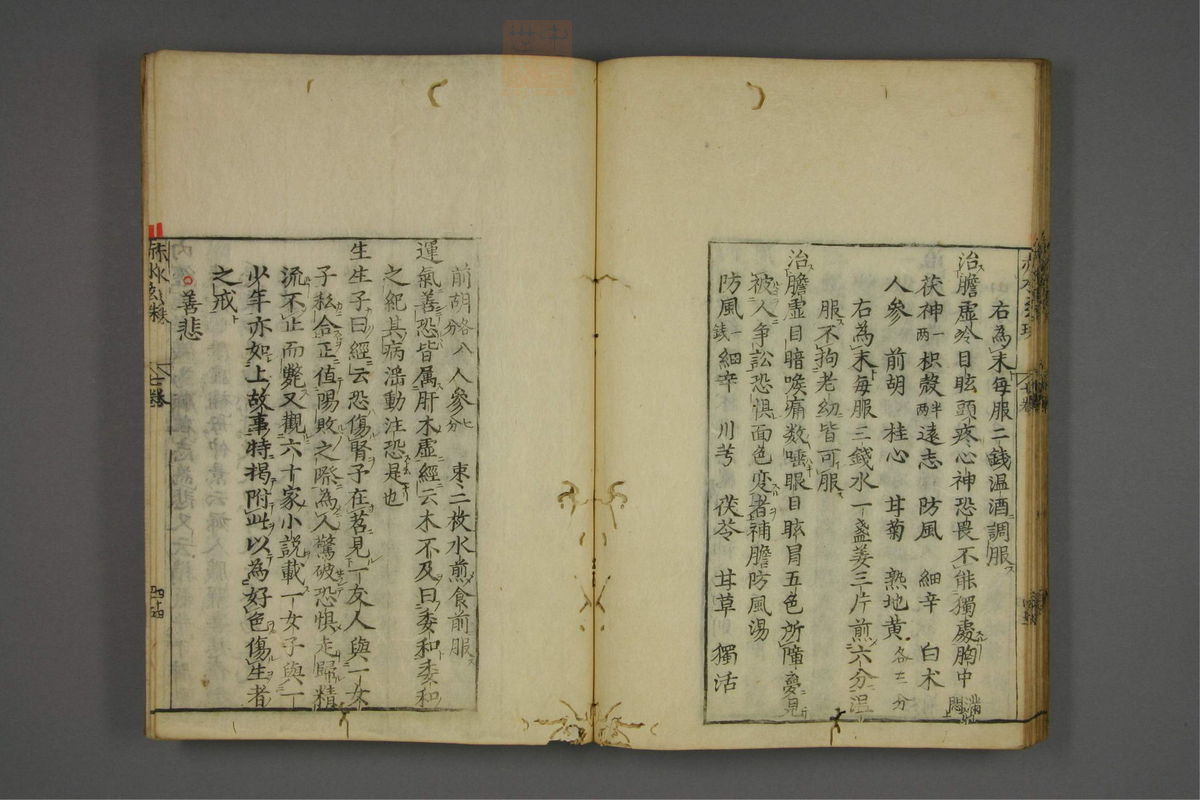 右為末毎服二錢温酒調服
治膽虚冷目眩頭疼心神恐畏不能獨處胸中滿悶
茯神一兩 枳殻半兩 遠志 防風 細辛 白术
人參 前胡 桂心 甘菊 熟地黄各七分
右為末毎服三錢水一盞姜三片煎六分温
服不拘老幼皆可服
治膽虚目暗喉痛数唾眼目眩冒五色所障夢見
被人争訟恐惧面色变者補膽防風湯
防風一錢 細辛 川芎 茯苓 甘草 獨活
前胡各八分 人參七分 東二枚水煎食前服
運氣善恐皆属肝木虚經云木不及曰委和委和
之紀其病淫動注恐是也
生生子曰經云恐傷腎予在苕見一友人與一女
子私合正值陽敗之際為人驚破恐惧走歸精
流不止而斃又觀六十家小説載一女子與一
少年亦如上故事特揭附此以為好色傷生者
之戒
善悲
赤水玄珠
七卷